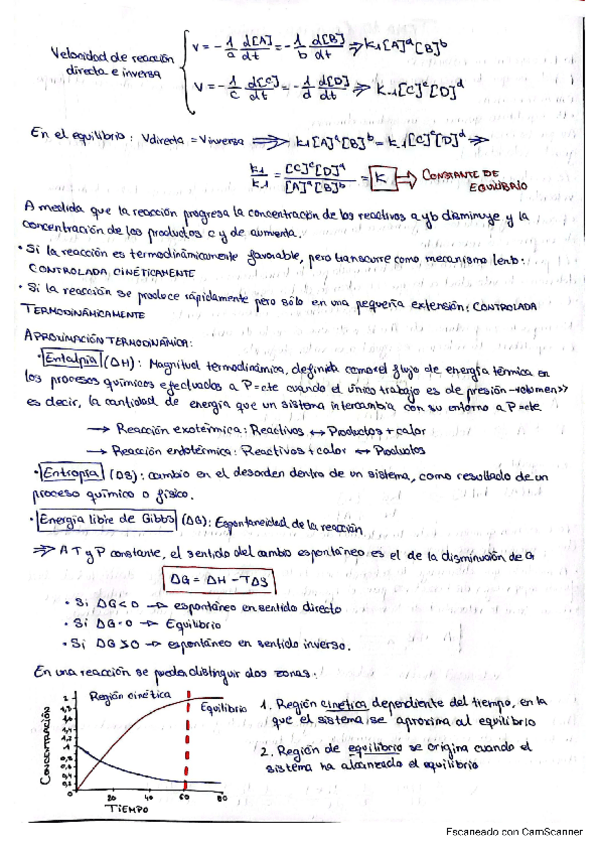 Velocidad de reacción directa e inversa
V = - 1/a d[A]/dt = - 1/b d[B]/dt ⇒ K1[A]^a[B]^b
V = - 1/c d[C]/dt = - 1/d d[D]/dt ⇒ K-1[C]^c[D]^d
En el equilibrio: Vdirecta = Vinversa ⇒ K1[A]^a[B]^b = K-1[C]^c[D]^d ⇒
K1/K-1 = [C]^c[D]^d/[A]^a[B]^b = K ⇒ CONSTANTE DE EQUILIBRIO
A medida que la reacción progresa la concentración de los reactivos a y b disminuye y la
concentración de los productos c y de aumenta.
• Si la reacción es termodinámicamente favorable, pero transcurre como mecanismo lento:
CONTROLADA CINÉTICAMENTE
• Si la reacción se produce rápidamente pero sólo en una pequeña extensión: CONTROLADA
TERMODINÁMICAMENTE
APROXIMACIÓN TERMODINÁMICA:
• Entalpía (ΔH): Magnitud termodinámica, definida como el flujo de energía térmica en
los procesos químicos efectuados a P=cte cuando el único trabajo es de presión-volumen>>
es decir, la cantidad de energía que un sistema intercambia con su entorno a P=cte
→ Reacción exotérmica: Reactivos ↔ Productos + calor
→ Reacción endotérmica: Reactivos + calor ↔ Productos
• Entropía (ΔS): cambio en el desorden dentro de un sistema, como resultado de un
proceso químico o físico.
• Energía libre de Gibbs (ΔG): Espontaneidad de la reacción
⇒ A T y P constante, el sentido del cambio espontáneo es el de la disminución de G
ΔG = ΔH - TΔS
• Si ΔG<0 → espontáneo en sentido directo
• Si ΔG=0 → Equilibrio
• Si ΔG>0 → espontáneo en sentido inverso.
En una reacción se pueden distinguir dos zonas:
Región cinética
Equilibrio
CONCENTRACIÓN
20 40 60 80
TIEMPO
1. Región cinética dependiente del tiempo, en la
que el sistema se aproxima al equilibrio
2. Región de equilibrio se origina cuando el
sistema ha alcanzado el equilibrio
Escaneado con CamScanner